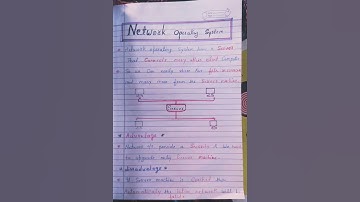 Network Operating System
Network operating System has a Server
that Connects many other client Computer
So we Can easily share the file, resources
and many more from the Server machine
Server
Advantage
Network O/S provide a
to Upgrade only Server machine
Disadvantage
If Server machine is Crashed then
Automatically the whole network will be
failure